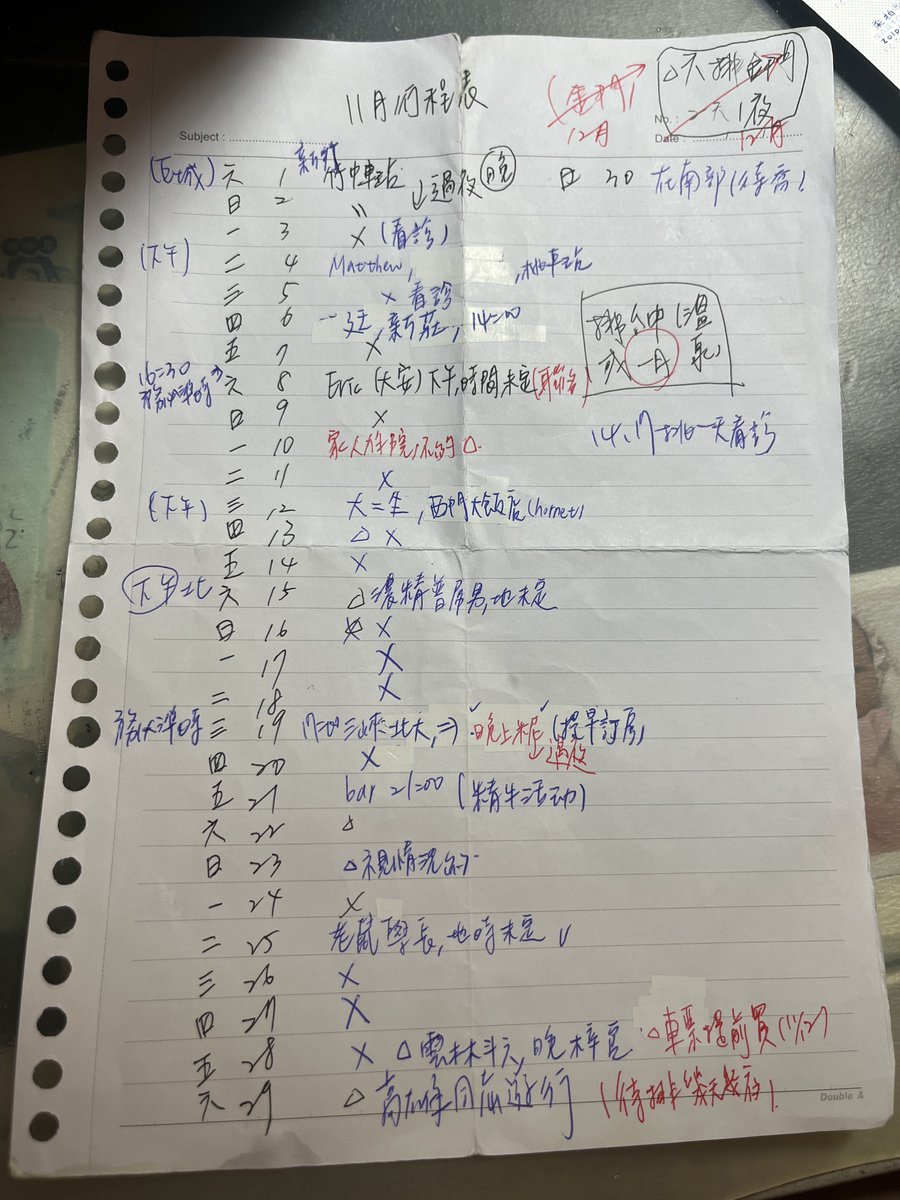 11月行程表
(金門)
12月
△六 排金門
2天1夜
12月
Subject :
No. :
Date :
(石城) 六 1 新竹 竹中車站 ↓過夜 晚
日 30 在南部(待喬)
日 2 〃
一 3 X (看診)
(下午) 二 4 Matthew, ,桃車站
三 5 X 看診
四 6 一廷,新莊,14:00
五 7 X
排台中(溫泉)
或一日
16:30
六 8 Eric (大安)下午,時間未定
日 9 X
14、17排一天看診
一 10 家人住院,不約 △
二 11 X
(下午) 三 12 大二生,西門大飯店(hornet)
四 13 △ X
五 14 X
下午北 六 15 △濃精普屌男,地未定
日 16 X
一 17 X
二 18 X
三 19 17:00三峽北大,⇒晚上 (提早訂房)
↓過夜
四 20 X
五 21 bar 21:00 (精牛活动)
六 22 △
日 23 △視情況約
一 24 X
二 25 老鼠學長,地時未定 ✓
三 26 X
四 27 X
五 28 X △雲林斗六,晚梓官 △車票提前買(11/12)
六 29 △高雄同志遊行 (待排幾天幾夜)
Double A